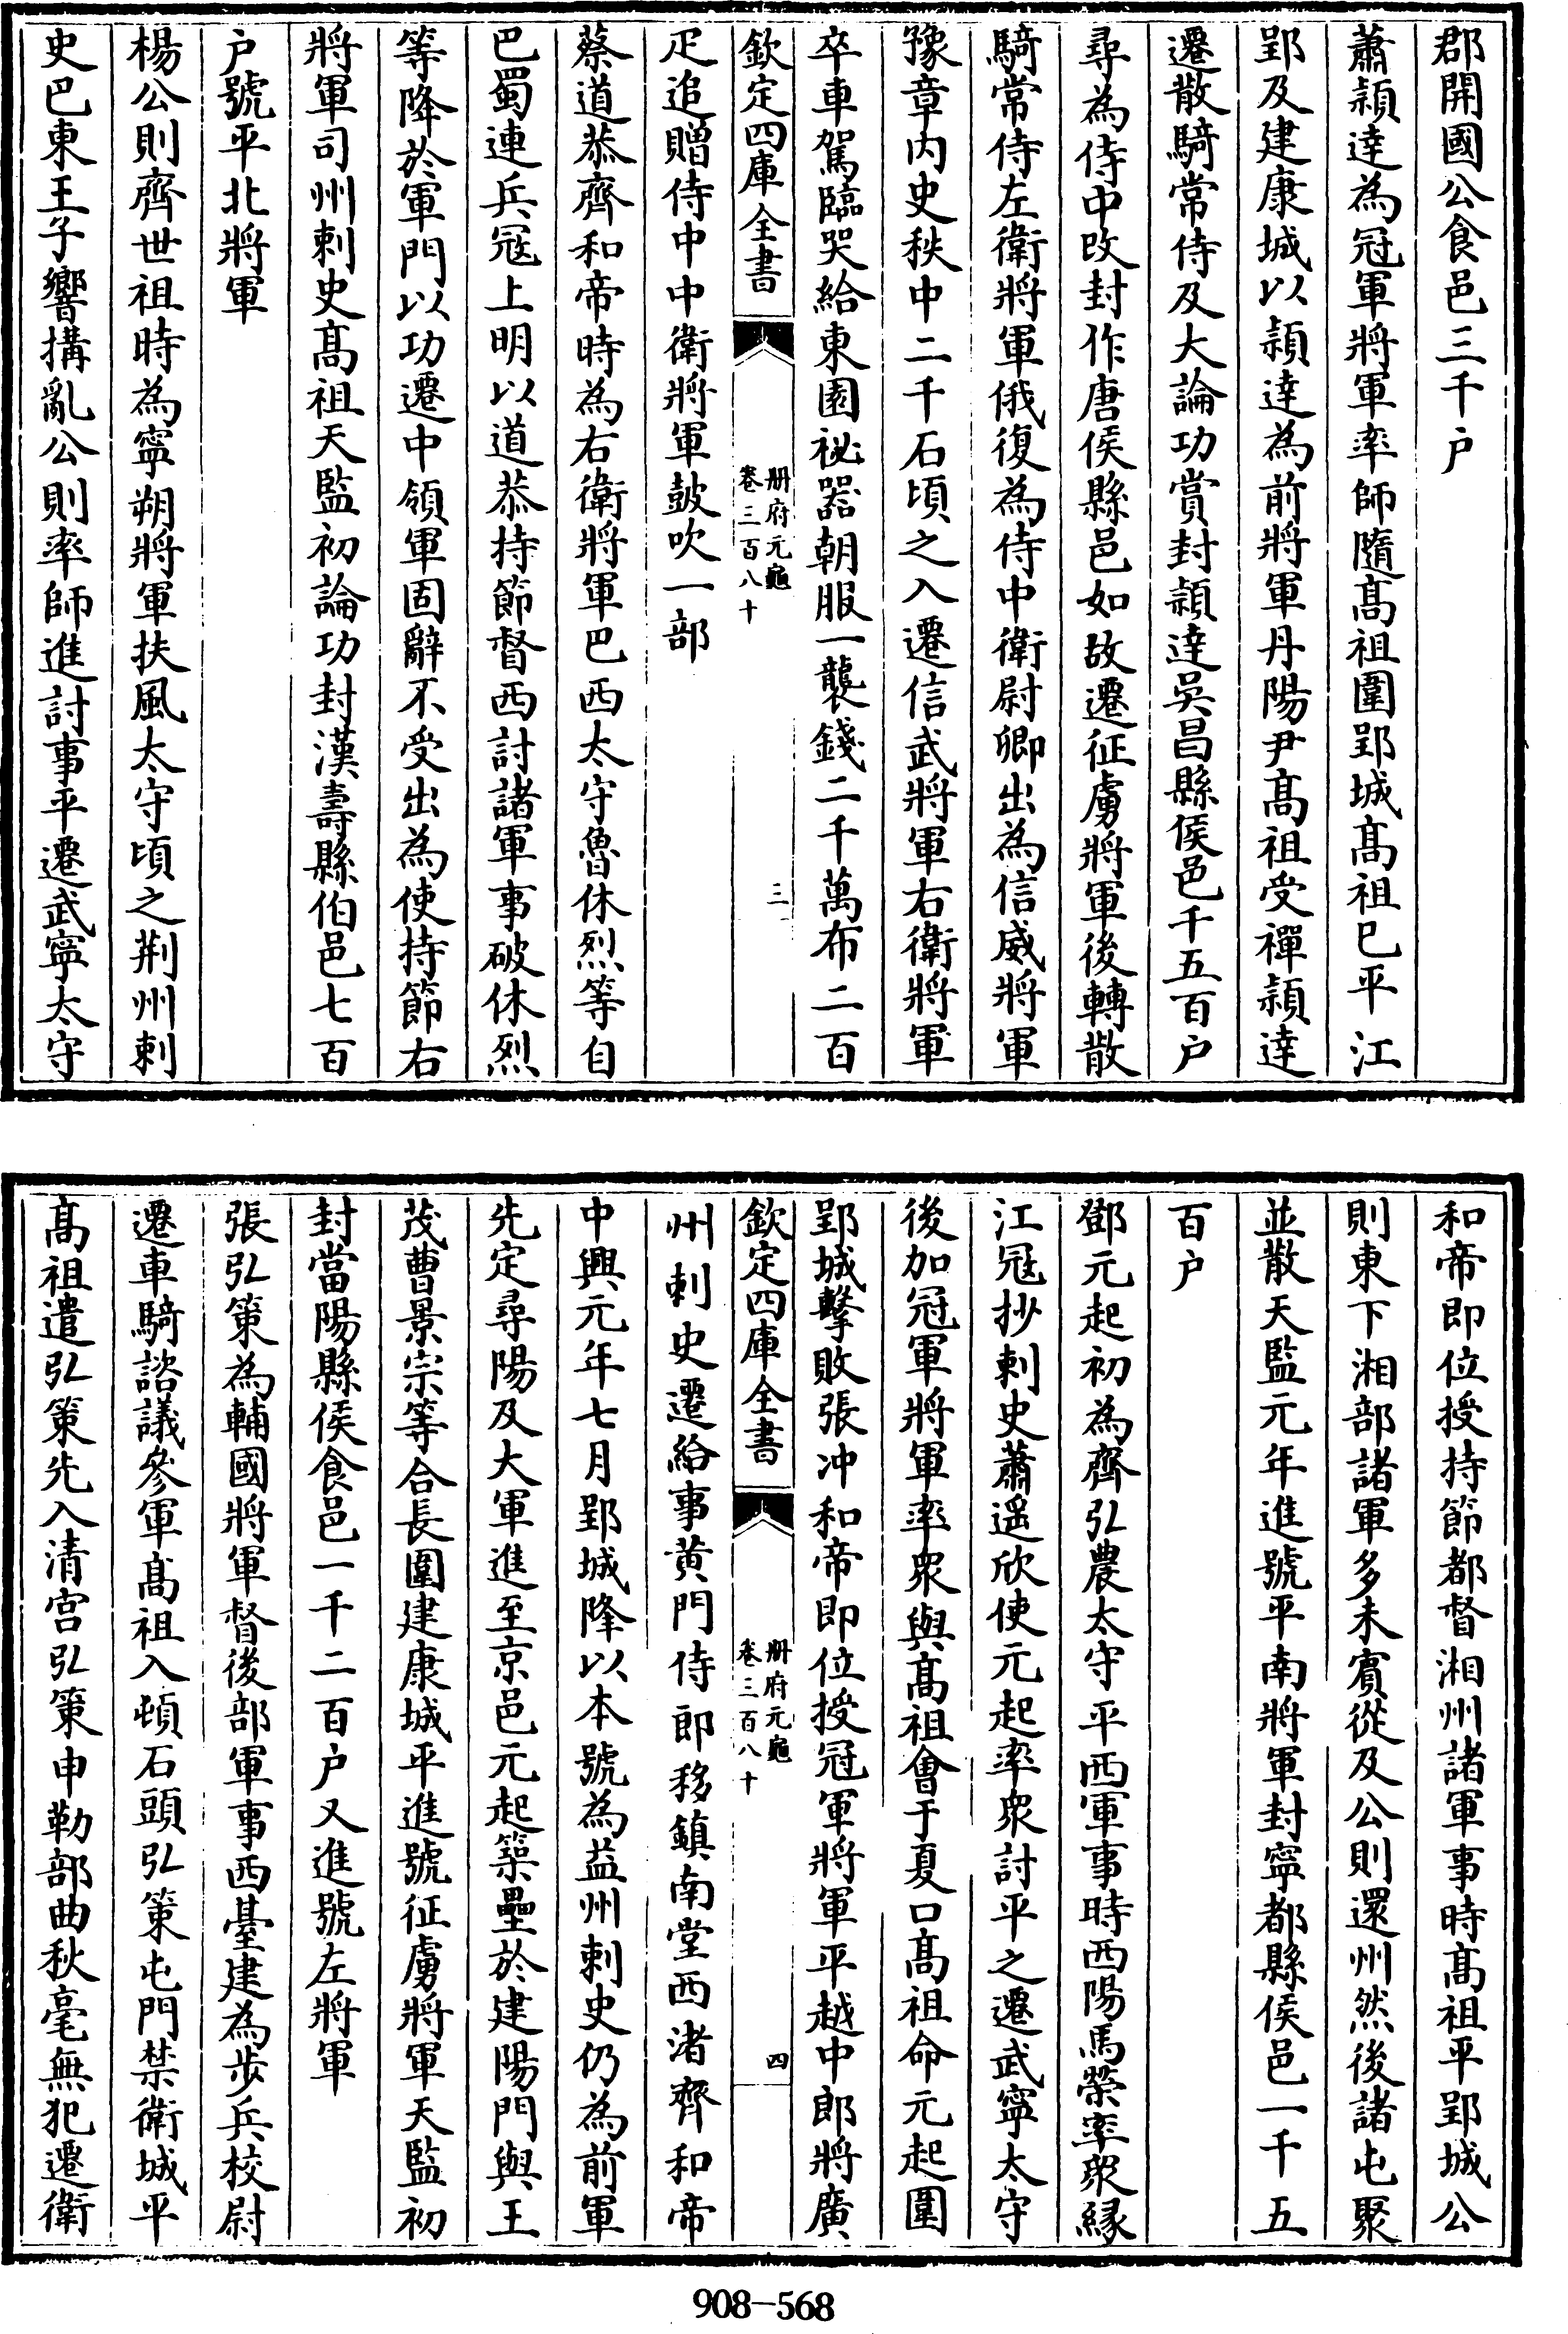 郡開國公食邑三千户
蕭頴達為冠軍將軍率師隨髙祖圍郢城髙祖已平江
郢及建康城以頴達為前將軍丹陽尹髙祖受禪頴達
遷散騎常侍及大論功賞封頴達吳昌縣侯邑千五百户
尋為侍中改封作唐侯縣邑如故遷征虜將軍後轉散
騎常侍左衛將軍俄復為侍中衛尉卿出為信威將軍
豫章内史秩中二千石頃之入遷信武將軍右衛將軍
卒車駕臨哭給東園祕器朝服一襲錢二千萬布二百
欽定四庫全書
册府元龜
卷三百八十
三
疋追贈侍中中衛將軍鼓吹一部
蔡道恭齊和帝時為右衛將軍巴西太守魯休烈等自
巴蜀連兵冦上明以道恭持節督西討諸軍事破休烈
等降於軍門以功遷中領軍固辭不受出為使持節右
將軍司州刺史髙祖天監初論功封漢壽縣伯邑七百
户號平北將軍
楊公則齊世祖時為寜朔將軍扶風太守頃之荆州刺
史巴東王子響搆亂公則率師進討事平遷武寜太守
和帝即位授持節都督湘州諸軍事時髙祖平郢城公
則東下湘部諸軍多未賓從及公則還州然後諸屯聚
並散天監元年進號平南將軍封寜都縣侯邑一千五
百户
鄧元起初為齊弘農太守平西軍事時西陽馬榮率衆縁
江冦抄刺史蕭遥欣使元起率衆討平之遷武寜太守
後加冠軍將軍率衆與髙祖會于夏口髙祖命元起圍
郢城擊敗張冲和帝即位授冠軍將軍平越中郎將廣
欽定四庫全書
册府元龜
卷三百八十
四
州刺史遷給事黄門侍郎移鎮南堂西渚齊和帝
中興元年七月郢城降以本號為益州刺史仍為前軍
先定尋陽及大軍進至京邑元起築壘於建陽門與王
茂曹景宗等合長圍建康城平進號征虜將軍天監初
封當陽縣侯食邑一千二百户又進號左將軍
張弘策為輔國將軍督後部軍事西臺建為步兵校尉
遷車騎諮議參軍髙祖入頓石頭弘策屯門禁衛城平
髙祖遣弘策先入清宫弘策申勒部曲秋毫無犯遷衛
908-568